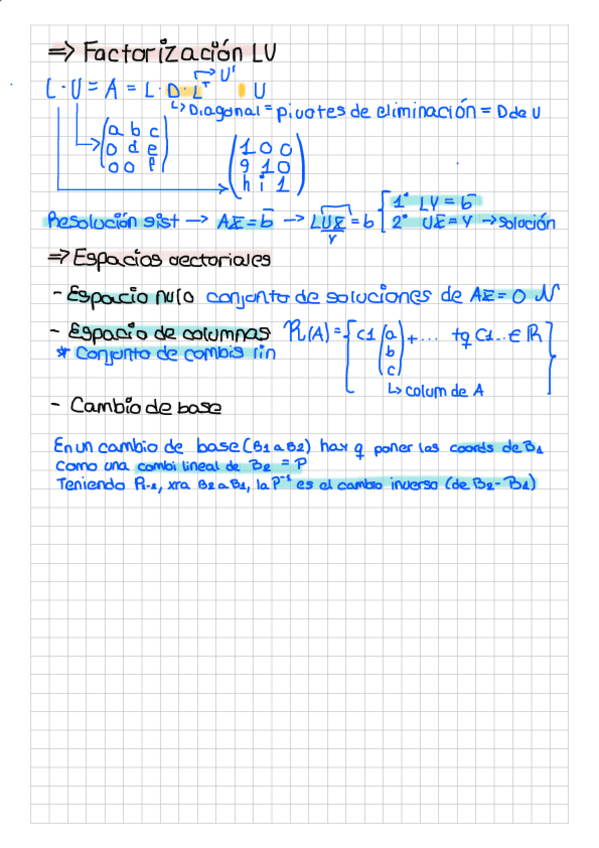 => Factorización LU
L · U = A = L · D · Lᵀ → U' · U
↳ Diagonal = pivotes de eliminación = D de U
(a b c
0 d e
0 0 f)
(1 0 0
g 1 0
h i 1)
Resolución sist → Ax̄ = b̄ → LUx̄ = b { 1º LY = b̄
Y 2º Ux̄ = Y → solución
=> Espacios vectoriales
- Espacio nulo conjunto de soluciones de Ax̄ = 0 N
- Espacio de columnas R(A) = { c1 (a b c) + ... tq C1... ∈ R }
* Conjunto de combis lin
↳ colum de A
- Cambio de base
En un cambio de base (B1 a B2) hay q poner las coords de B1
Como una combi lineal de B2 = P
Teniendo P1-2, xra B2 a B1, la P⁻¹ es el cambio inverso (de B2 - B1)